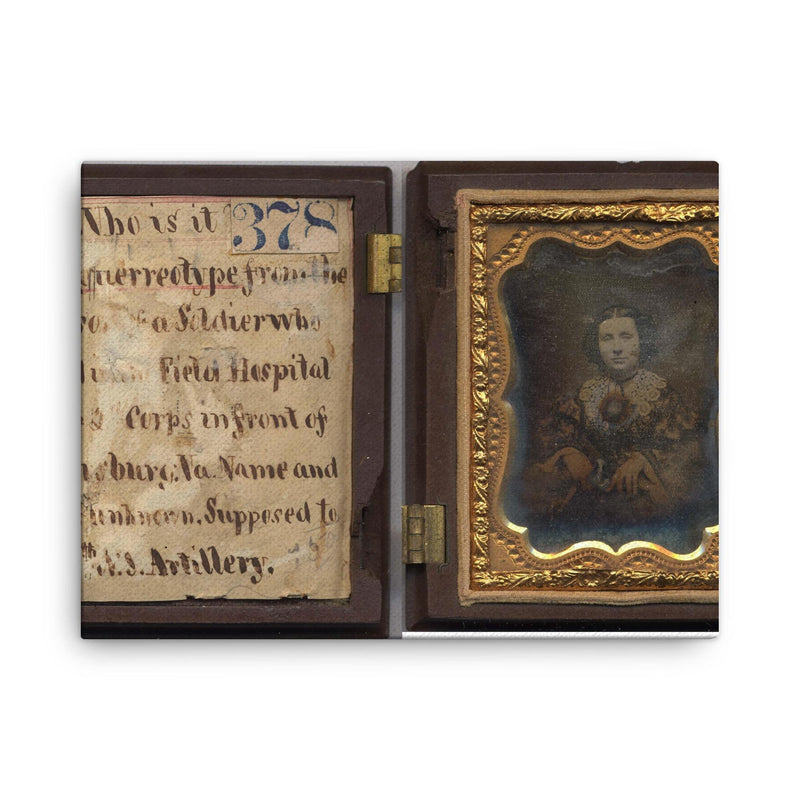 Who is it 378
uerreotype from the
of a Soldier who
Field Hospital
Corps in front of
sburg, Va. Name and
unknown. Supposed to
Artillery.